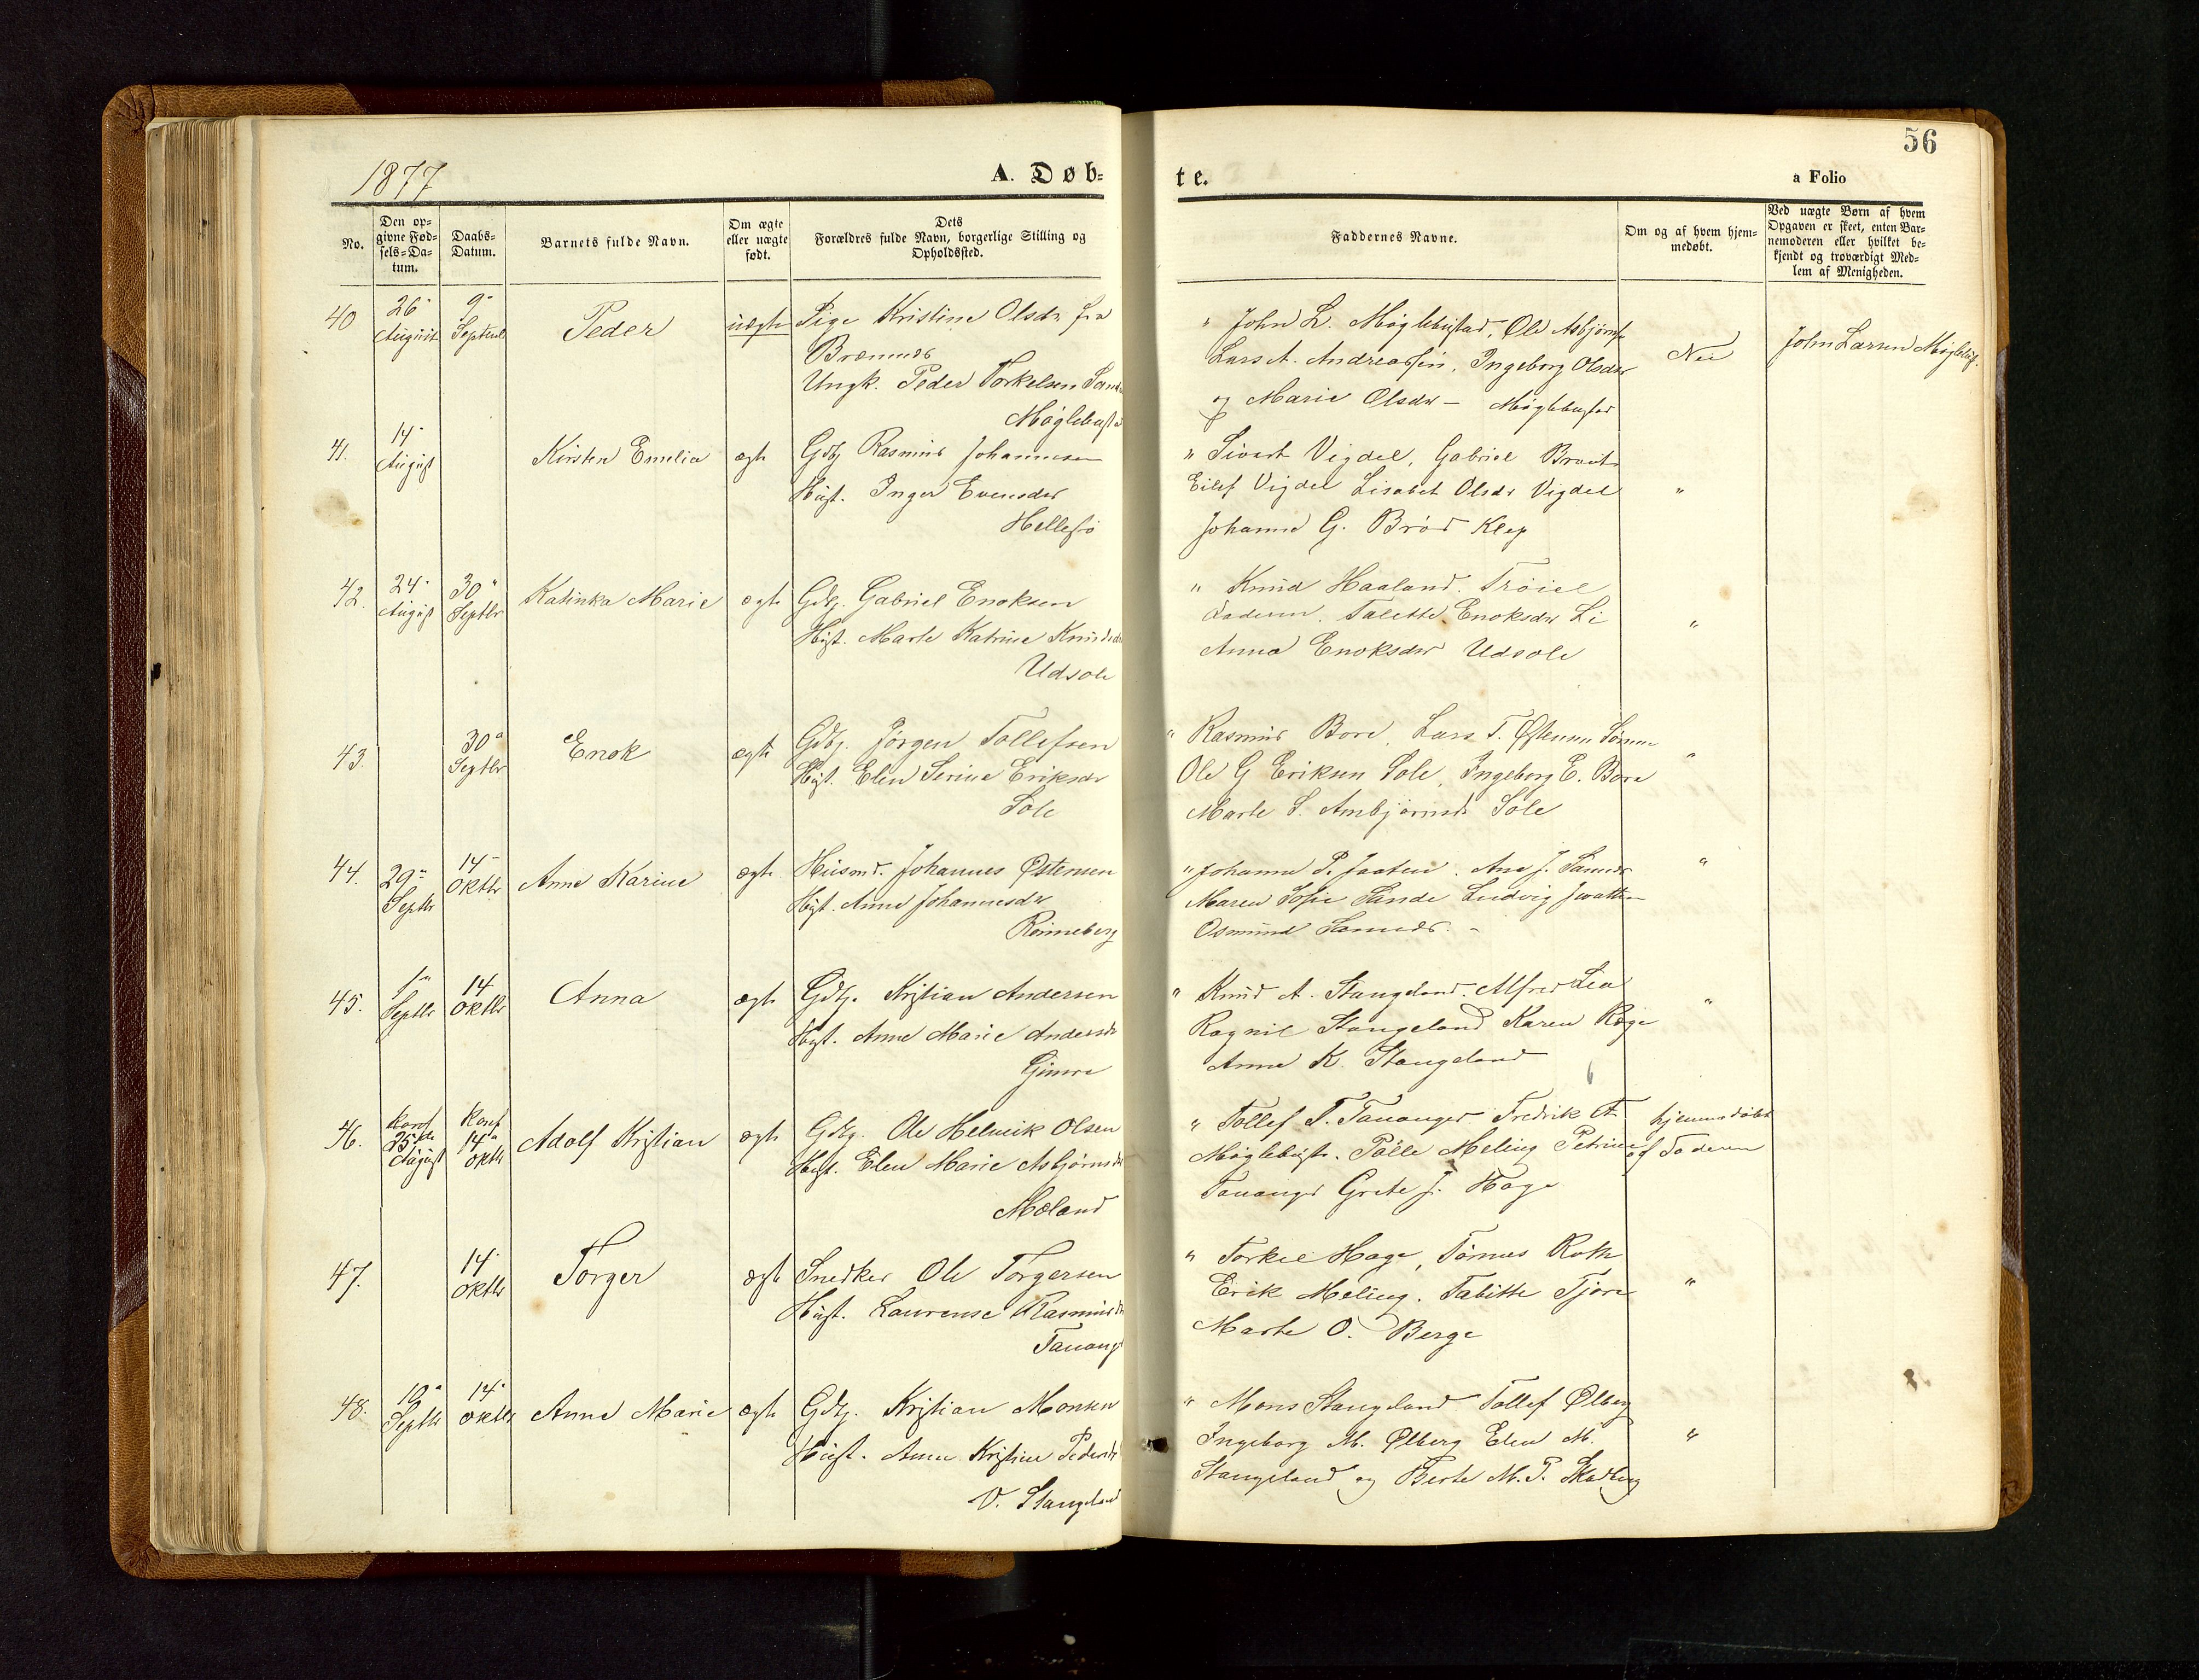 56
1877
A. Døb=
te.
a Folio
No.
Den op=
givne Fød=
sels=Da=
tum.
Daabs=
Datum.
Barnets fulde Navn.
Om ægte
eller uægte
født.
Dets
Forældres fulde Navn, borgerlige Stilling og
Opholdssted.
Faddernes Navne.
Om og af hvem hjem=
medøbt.
Ved uægte Børn af hvem
Opgaven er skeet, enten Bar=
nemoderen eller hvilket be=
kjendt og troværdigt Med=
lem af Menigheden.
40
26
August
9
Septemb
Peder
uægte
Pige Kristine Olsdr fra
Ungk. Peder Torkelsen
Møglebust
" John L. Møglebustad, Ole Asbjørns
Lars A. Andreassen, Ingeborg Olsdr
og Marie Olsdr - Møglebustad
Nei
John Larsen Møglebust.
41.
14
August
Kirsten Emelia
ægte
Gdbg Rasmus Johannesen
Hust. Inger Evensdr
Hellesø
" Sivert Vigdel, Gabriel
Eilef Vigdel Lisabet Olsdr Vigdel
Johanne G. Brød Klep
"
42.
24
August
30
Septbr
Katinka Marie
ægte
Gdbg. Gabriel Enoksen
Hust. Marte Katrine Knudsdr
Udsole
" Knud Haaland.
Faderen. Talette Enoksdr Li
Anna Enoksdr Udsole
"
43.
30
Septbr
Enok
ægte
Gdbg. Jørgen Tollefsen
Hust. Elen Serine Eriksdr
Sole
" Rasmus Bore, Lars T.
Ole G Eriksen Sole, Ingeborg E. Bore
Marte S. Ambjørnsdr Sole
"
44.
29
Septbr
14
Oktbr
Anne Karine
ægte
Husmd. Johannes Østensen
Hust. Anne Johannesdr
Rønneberg
" Johanne P. Jaaten. Ane J.
Maren Sofie Sande Ludvig Jaatten
Osmund
"
45.
1
Septbr
14
Oktbr
Anna
ægte
Gdbg. Kristian Andersen
Hust. Anne Marie Andersdr
Gimre
" Knud A. Stangeland. Alfred Lea
Ragnil Stangeland Karen Rege
Anna K. Stangeland
"
46.
Konf
25de
August
Konf
14
Oktbr
Adolf Kristian
ægte
Gdbg. Ole Helmik Olsen
Hust. Elen Marie Asbjørnsdr
Meland
" Tollef T. Tananger Fredrik A
Møglebust. Pålle Meling Petrine
Tananger Grete J. Hage
hjemmedøbt
af Faderen
47.
14
Oktbr
Torger
ægte
Snedker Ole Torgersen
Hust. Laurense Rasmusdr
Tanang
" Torkel Hage, Tønnes Roth
Erik Meling. Tabitte Tjora
Marte O. Berge
"
48.
10
Septbr
14
Oktbr
Anne Marie
ægte
Gdbg. Kristian Monsen
Hust. Anne Kristine Pedersdr
V. Stangeland
" Mons Stangeland Tollef Ølberg
Ingeborg M. Ølberg Elen M.
Stangeland og Berte M. T. Skadberg
"